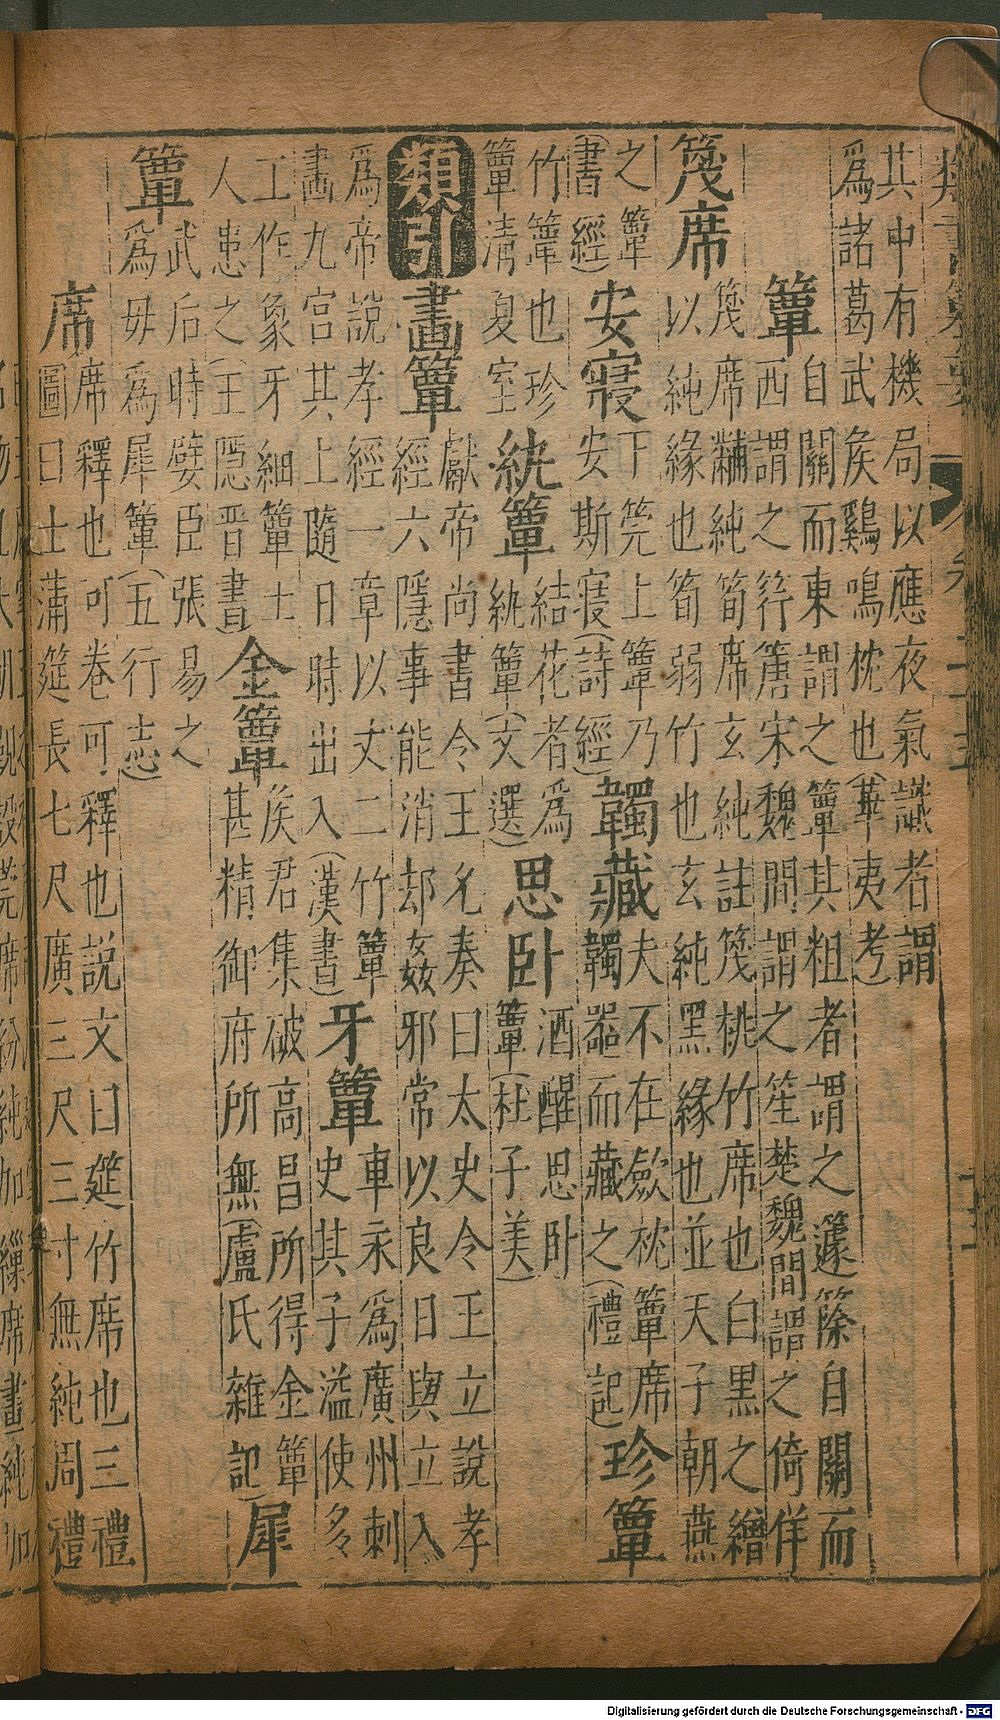 其中有機局以應夜氣識者謂
為諸葛武侯鷄鳴枕也(華夷考)
簟
自關而東謂之簟其粗者謂之籧篨自關而
西謂之筕篖宋魏間謂之笙楚魏間謂之倚佯
篾席
篾席黼純筍席玄純註篾桃竹席也白黑之繒
以純緣也筍弱竹也玄純黑緣也並天子朝燕
之簟
(書經)
安寢
下筦上簟乃
安斯寢(詩經)
韣藏
夫不在歛枕簟席
韣器而藏之(禮記)
珍簟
竹簟也珍
簟清夏室
紈簟
結花者為
紈簟(文選)
思卧
酒醒思卧
簟(杜子美)
類引
畫簟
獻帝尚書令王允奏曰太史令王立說孝
經六隱事能消却姦邪常以良日與立入
為帝說孝經一章以丈二竹簟
畫九宮其上隨日時出入(漢書)
牙簟
車永為廣州刺
史其子溢使多
工作象牙細簟士
人患之(王隱晉書)
金簟
侯君集破高昌所得金簟
甚精御府所無(盧氏雜記)
犀
簟
武后時嬖臣張易之
為毋為犀簟(五行志)
席
席釋也可卷可釋也說文曰筵竹席也三禮
圖曰士蒲筵長七尺廣三尺三寸無純周禮
Digitalisierung gefördert durch die Deutsche Forschungsgemeinschaft - DFG